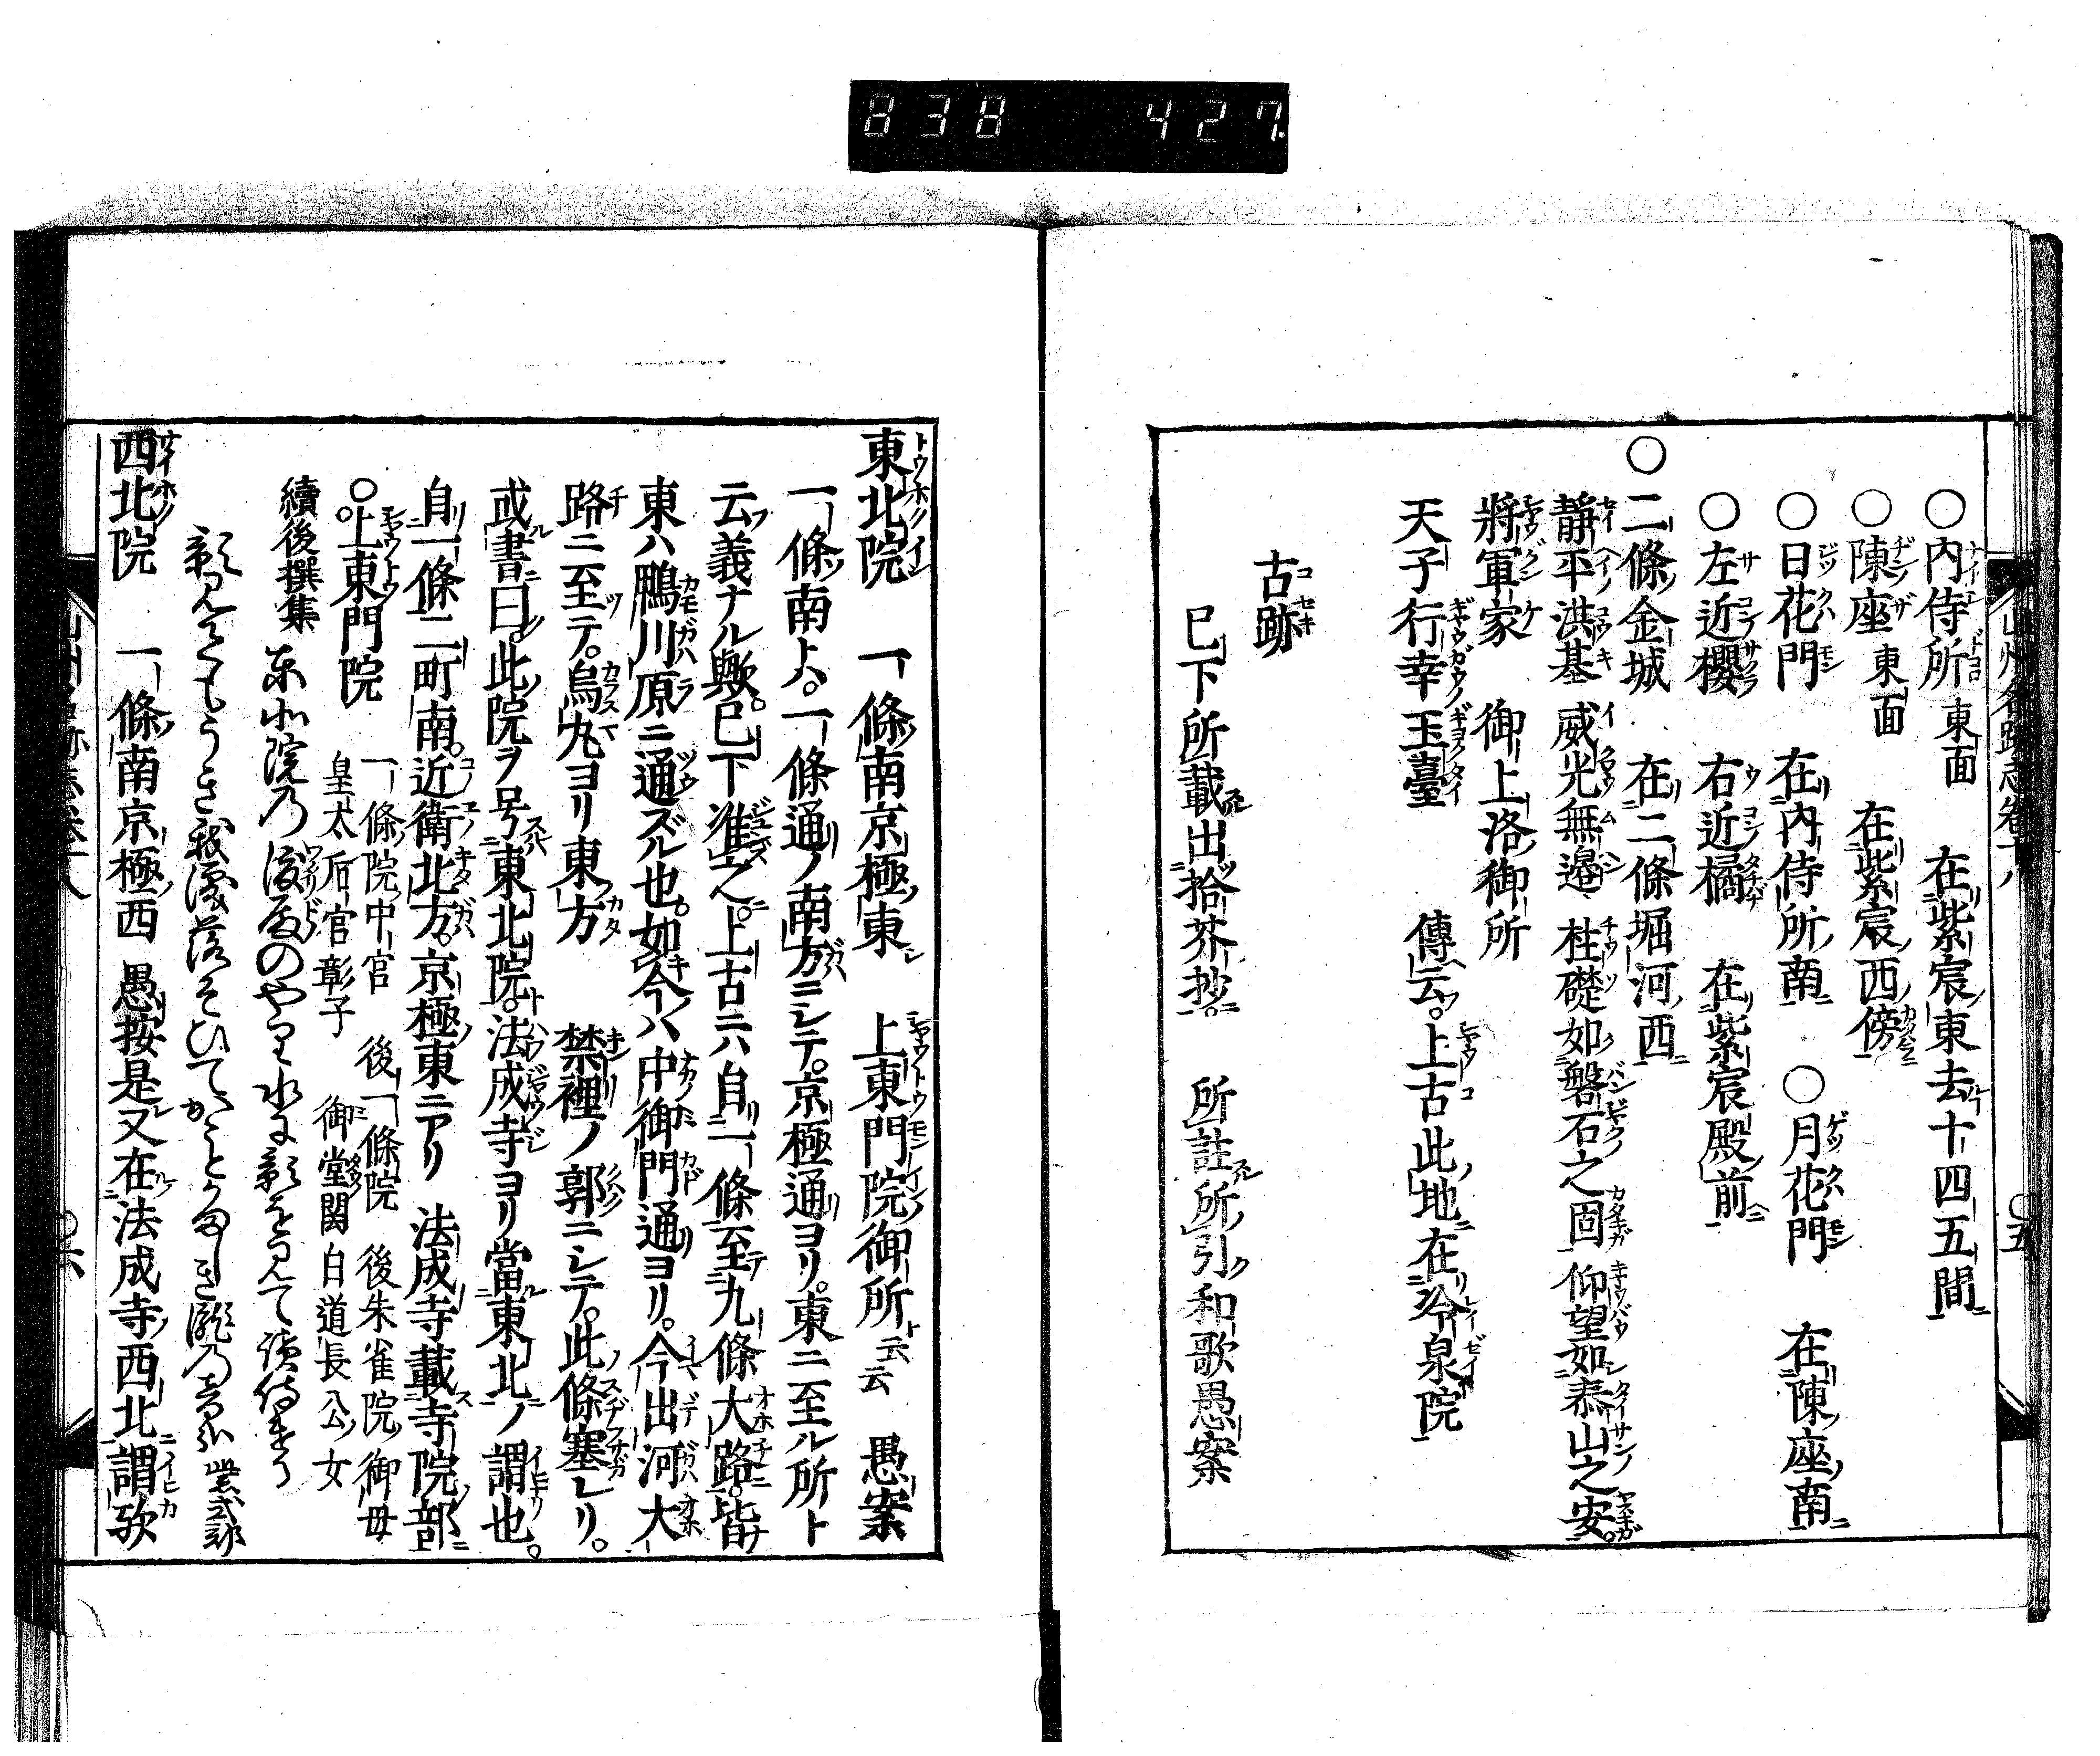 838 427.
○内侍所 東面 在紫宸東去十四五間
○陳座 東面 在紫宸西傍
○日花門 在内侍所南 ○月花門 在陳座南
○左近櫻 右近橘 在紫宸殿前
○二條金城 在二條堀河西
静平洪基 威光無邉 柱礎如磐石之固 仰望如泰山之安。
將軍家 御上洛御所
天子行幸玉臺 傳云。上古此地在冷泉院
古跡
已下所載出拾芥抄。 所註所引和歌愚案
東北院 一條南京極東 上東門院御所ト云云 愚案
一條南トハ。一條通ノ南方ニシテ。京極通ヨリ。東ニ至ル所ト
云義ナル歟。已下准之。上古ニハ自一條至九條大路。皆
東ハ鴨川原ニ通ズル也。如今ハ中御門通ヨリ。今出河大
路ニ至テ。烏丸ヨリ東方 禁裡ノ郭ニシテ。此條塞レリ。
或書曰。此院ヲ号東北院。法成寺ヨリ當東北ノ謂也。
自一條二町南。近衛北方。京極東ニアリ 法成寺載寺院部
○上東門院 一條院中宮 後一條院 後朱雀院御母
皇太后宮彰子 御堂関白道長公女
續後撰集 東北院の渡殿のやり水に影を見て読侍ける
影見てもうき我涙落そひてかことかましき瀧の音哉 紫式部
西北院 一條南京極西 愚按是又在法成寺西北謂歟